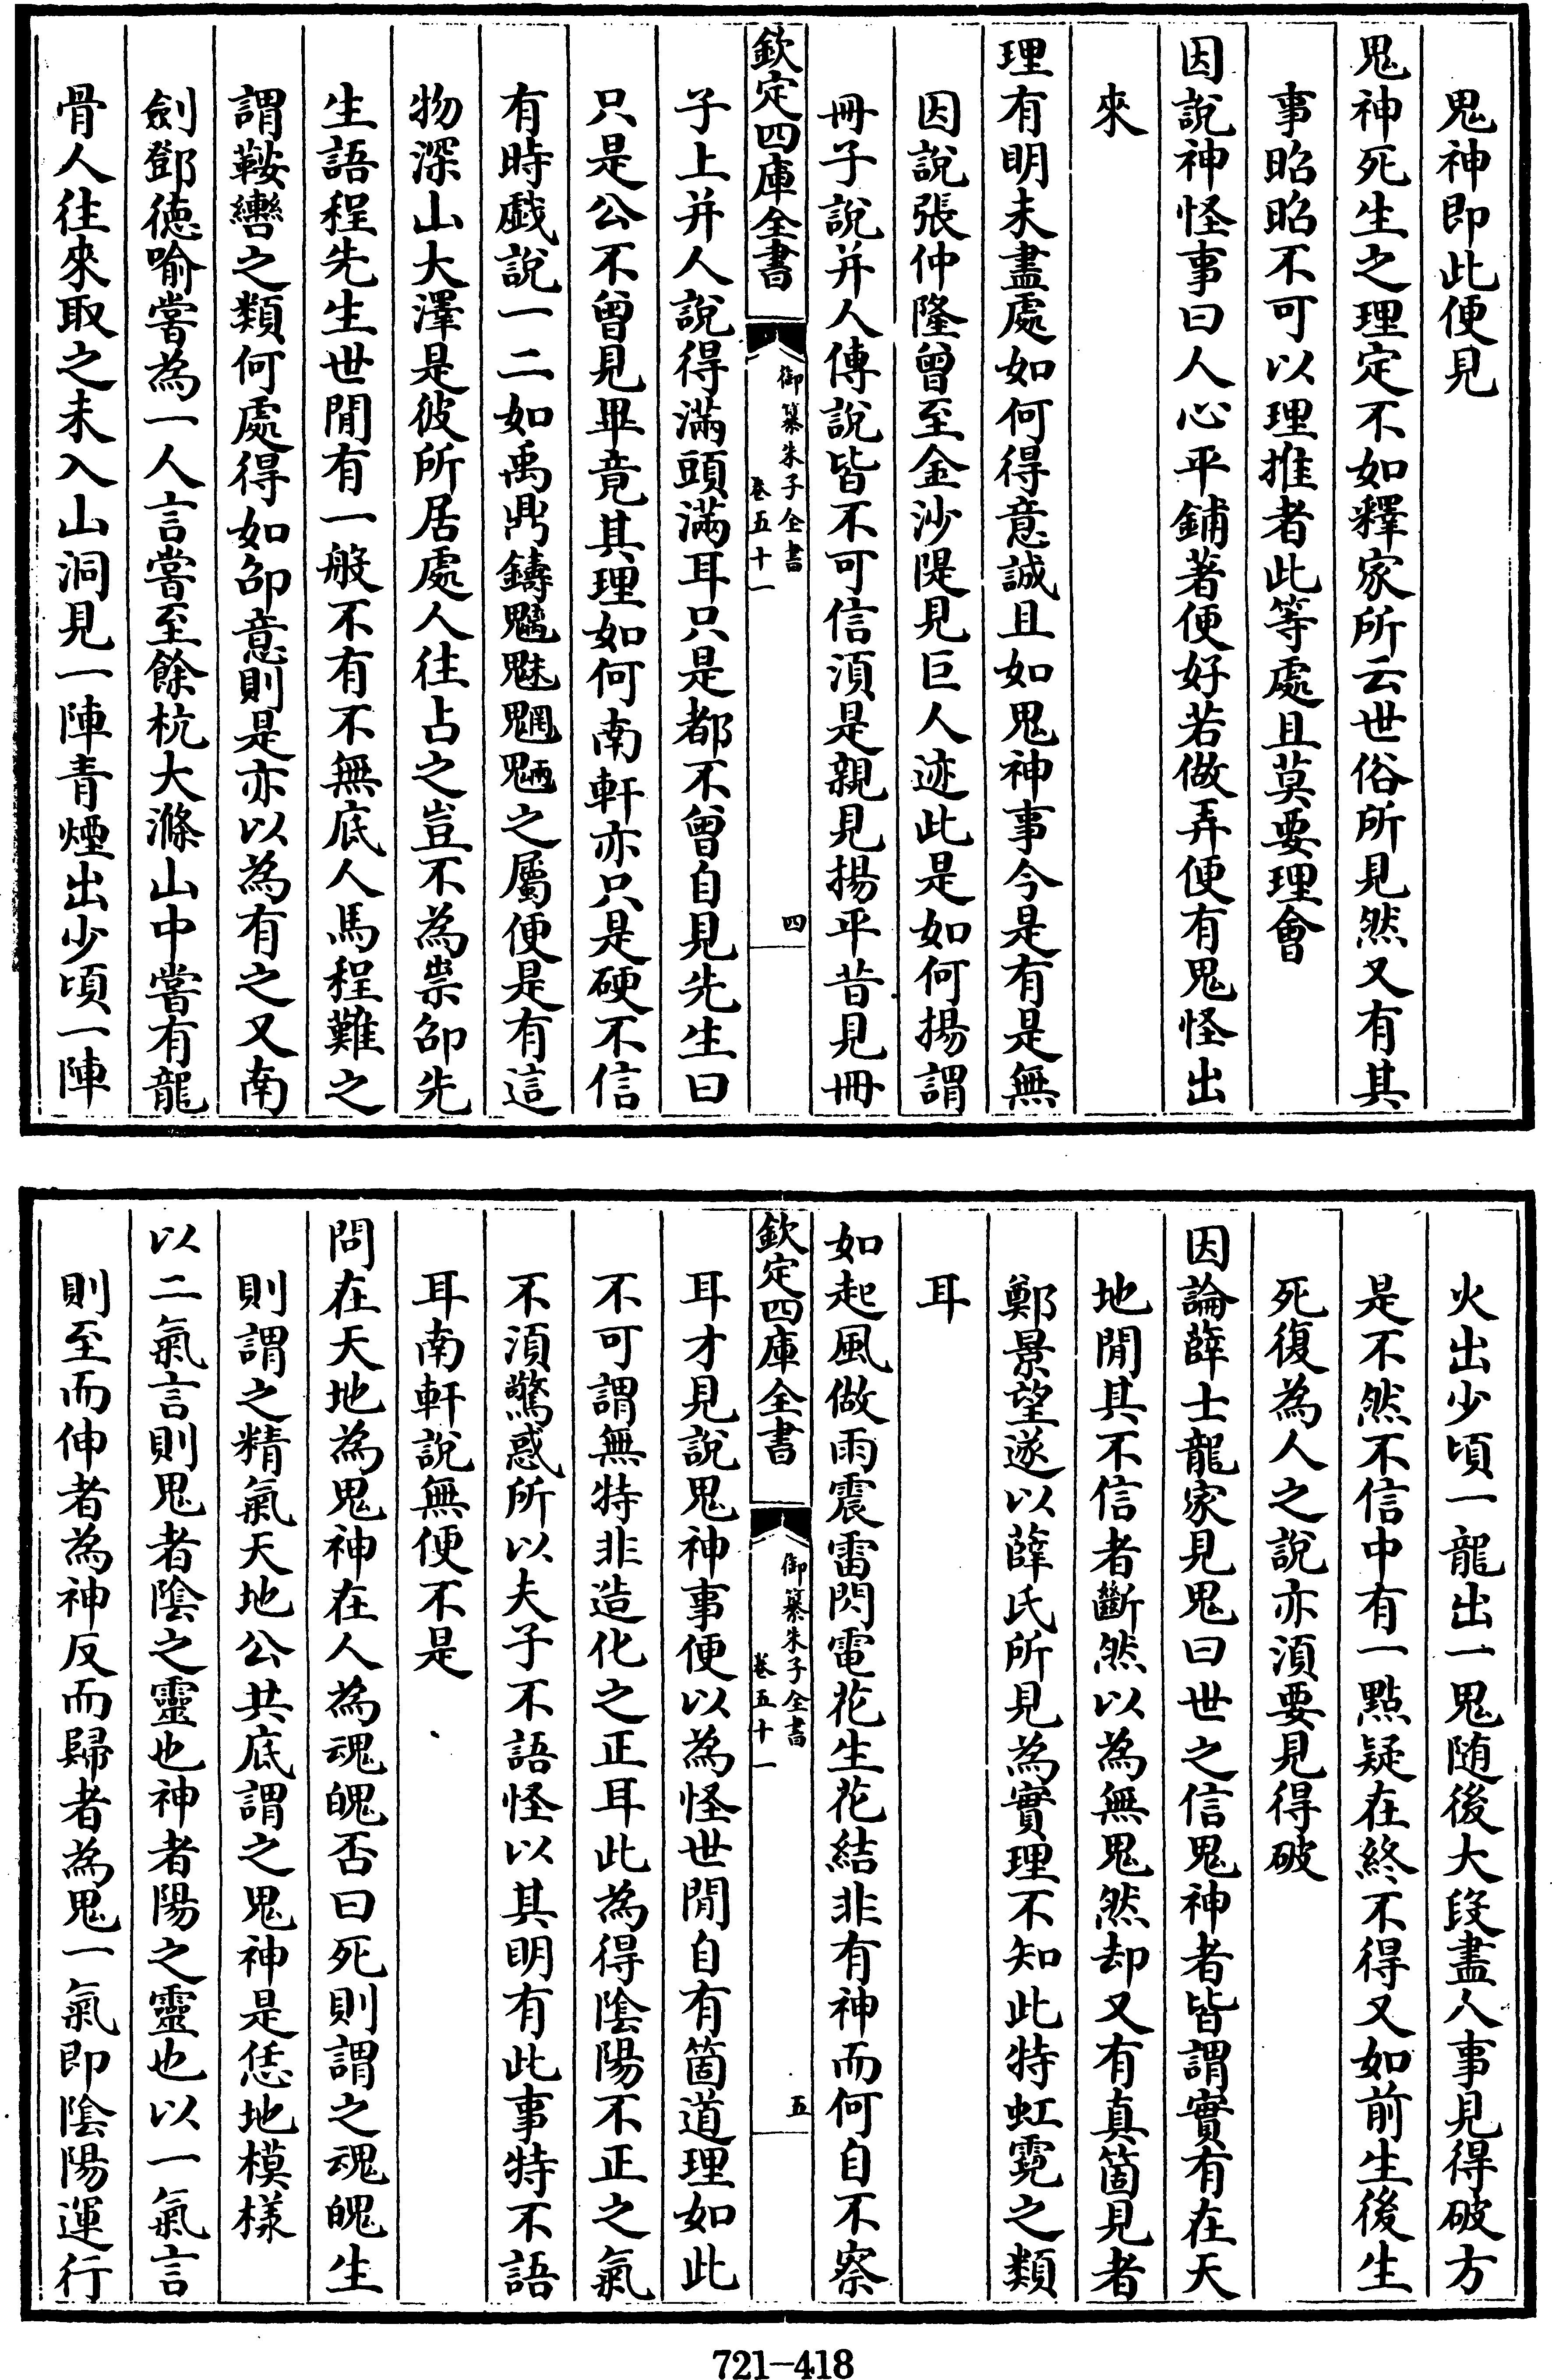 鬼神即此便見
鬼神死生之理定不如釋家所云世俗所見然又有其
事昭昭不可以理推者此等處且莫要理會
因說神怪事曰人心平鋪著便好若做弄便有鬼怪出
來
理有明未盡處如何得意誠且如鬼神事今是有是無
因說張仲隆曾至金沙隄見巨人迹此是如何揚謂
冊子說并人傳說皆不可信須是親見揚平昔見冊
欽定四庫全書
御纂朱子全書
卷五十一
四
子上并人說得滿頭滿耳只是都不曾自見先生曰
只是公不曾見畢竟其理如何南軒亦只是硬不信
有時戱說一二如禹鼎鑄魑魅魍魎之屬便是有這
物深山大澤是彼所居處人往占之豈不為祟邵先
生語程先生世閒有一般不有不無底人馬程難之
謂鞍轡之類何處得如邵意則是亦以為有之又南
劍鄧德喻嘗為一人言嘗至餘杭大滌山中嘗有龍
骨人往來取之未入山洞見一陣青煙出少頃一陣
火出少頃一龍出一鬼随後大段盡人事見得破方
是不然不信中有一點疑在終不得又如前生後生
死復為人之說亦須要見得破
因論薛士龍家見鬼曰世之信鬼神者皆謂實有在天
地閒其不信者斷然以為無鬼然却又有真箇見者
鄭景望遂以薛氏所見為實理不知此特虹霓之類
耳
如起風做雨震雷閃電花生花結非有神而何自不察
欽定四庫全書
御纂朱子全書
卷五十一
五
耳才見說鬼神事便以為怪世閒自有箇道理如此
不可謂無特非造化之正耳此為得陰陽不正之氣
不須驚惑所以夫子不語怪以其明有此事特不語
耳南軒說無便不是
問在天地為鬼神在人為魂魄否曰死則謂之魂魄生
則謂之精氣天地公共底謂之鬼神是恁地模樣
以二氣言則鬼者陰之靈也神者陽之靈也以一氣言
則至而伸者為神反而歸者為鬼一氣即陰陽運行
721-418